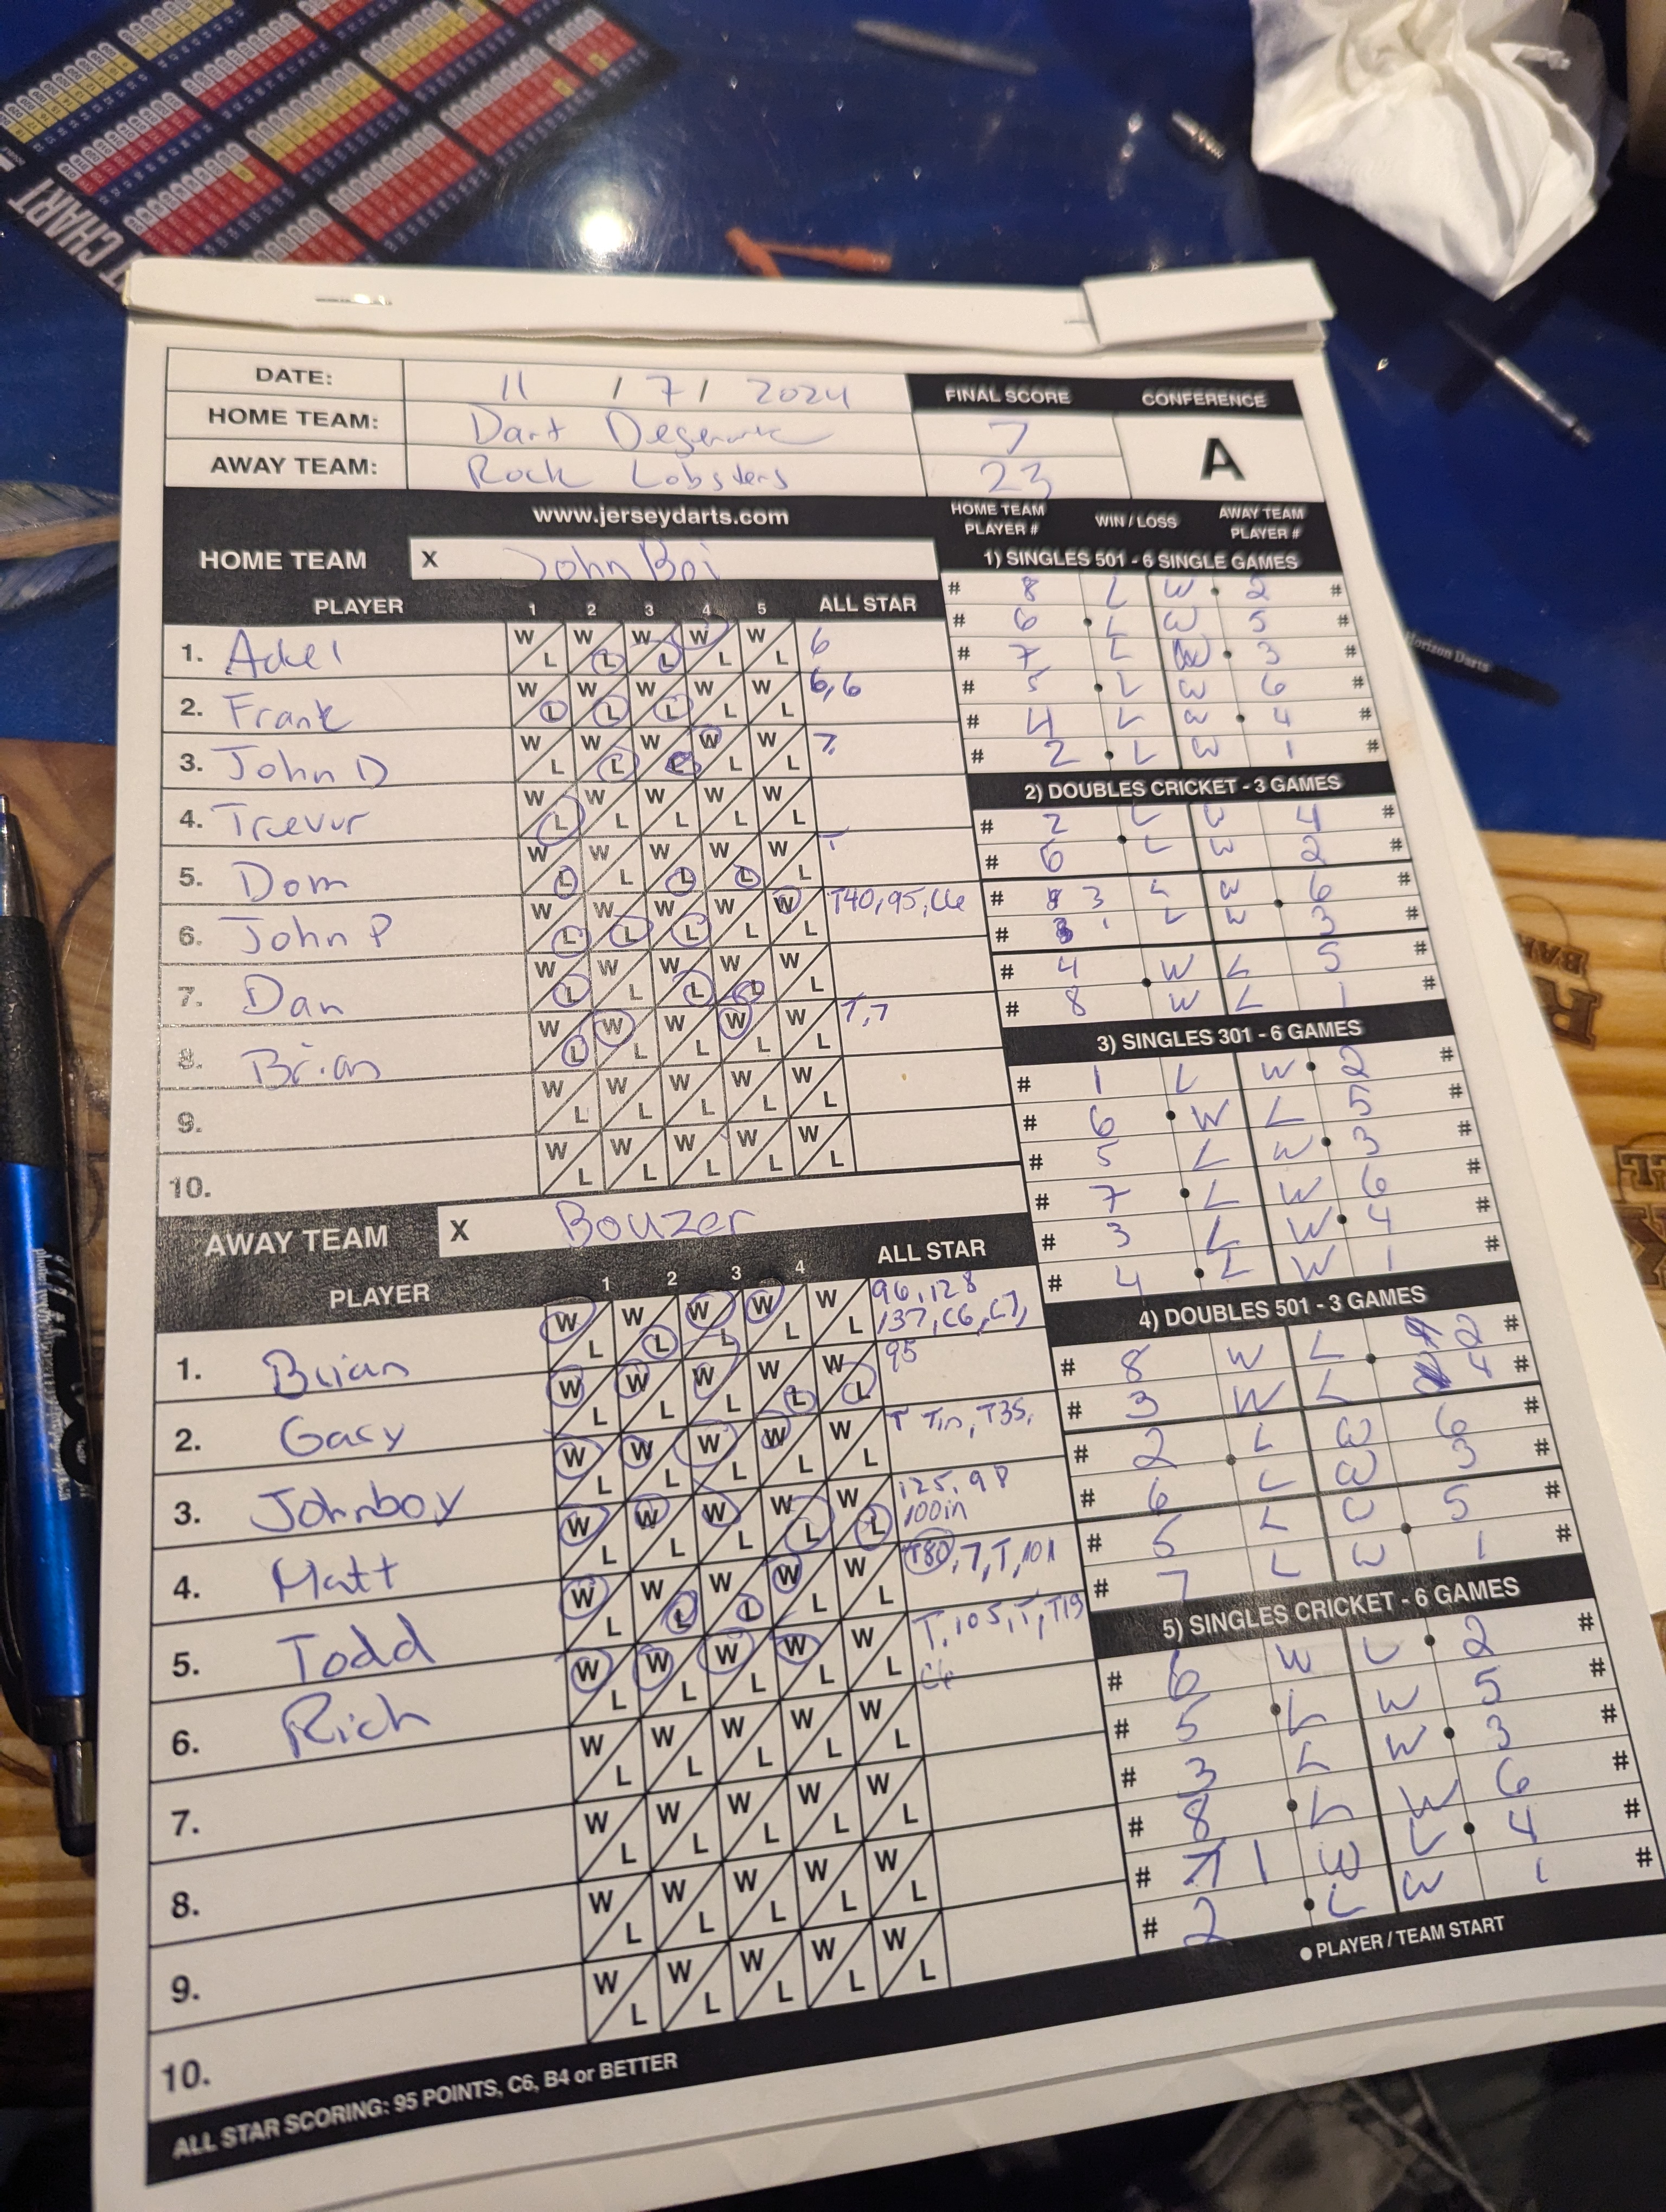 CHART
DATE: 11 / 7 / 2024
FINAL SCORE CONFERENCE
HOME TEAM: Dart 7
A
AWAY TEAM: Rock Lobsters 23
www.jerseydarts.com
HOME TEAM PLAYER # WIN / LOSS AWAY TEAM PLAYER #
HOME TEAM X John Boi
PLAYER 1 2 3 4 5 ALL STAR
1. Adel W L W L W L W L W L 6
2. Frank W L W L W L W L W L 6,6
3. John D W L W L W L W L W L 7
4. Trevur W L W L W L W L W L
5. Dom W L W L W L W L W L T
6. John P W L W L W L W L W L T40, 95, C6
7. Dan W L W L W L W L W L
8. Brian W L W L W L W L W L T, 7
9. W L W L W L W L W L
10. W L W L W L W L W L
AWAY TEAM X Bouzer
PLAYER 1 2 3 4 ALL STAR
1. Brian W L W L W L W L W L 96, 128
137, C6, C7,
2. Gary W L W L W L W L W L 95
3. Johnboy W L W L W L W L W L T Tin, T35,
4. Matt W L W L W L W L W L 125, 98
100in
5. Todd W L W L W L W L W L T80, 7, T, 101
6. Rich W L W L W L W L W L T, 105, T, T19
C6
7. W L W L W L W L W L
8. W L W L W L W L W L
9. W L W L W L W L W L
10. W L W L W L W L W L
ALL STAR SCORING: 95 POINTS, C6, B4 or BETTER
1) SINGLES 501 - 6 SINGLE GAMES
# 8 L W 2 #
# 6 L W 5 #
# 7 L W 3 #
# 5 L W 6 #
# 4 L W 4 #
# 2 L W 1 #
2) DOUBLES CRICKET - 3 GAMES
# 2 L W 4 #
# 6 L W 2 #
# 3 L W 6 #
# 1 L W 3 #
# 4 W L 5 #
# 8 W L 1 #
3) SINGLES 301 - 6 GAMES
# 1 L W 2 #
# 6 W L 5 #
# 5 L W 3 #
# 7 L W 6 #
# 3 L W 4 #
# 4 L W 1 #
4) DOUBLES 501 - 3 GAMES
# 8 W L 2 #
# 3 W L 4 #
# 2 L W 6 #
# 6 L W 3 #
# 5 L W 5 #
# 7 L W 1 #
5) SINGLES CRICKET - 6 GAMES
# 6 W L 2 #
# 5 L W 5 #
# 3 L W 3 #
# 8 L W 6 #
# 1 W L 4 #
# 2 L W 1 #
● PLAYER / TEAM START
Horizon Darts